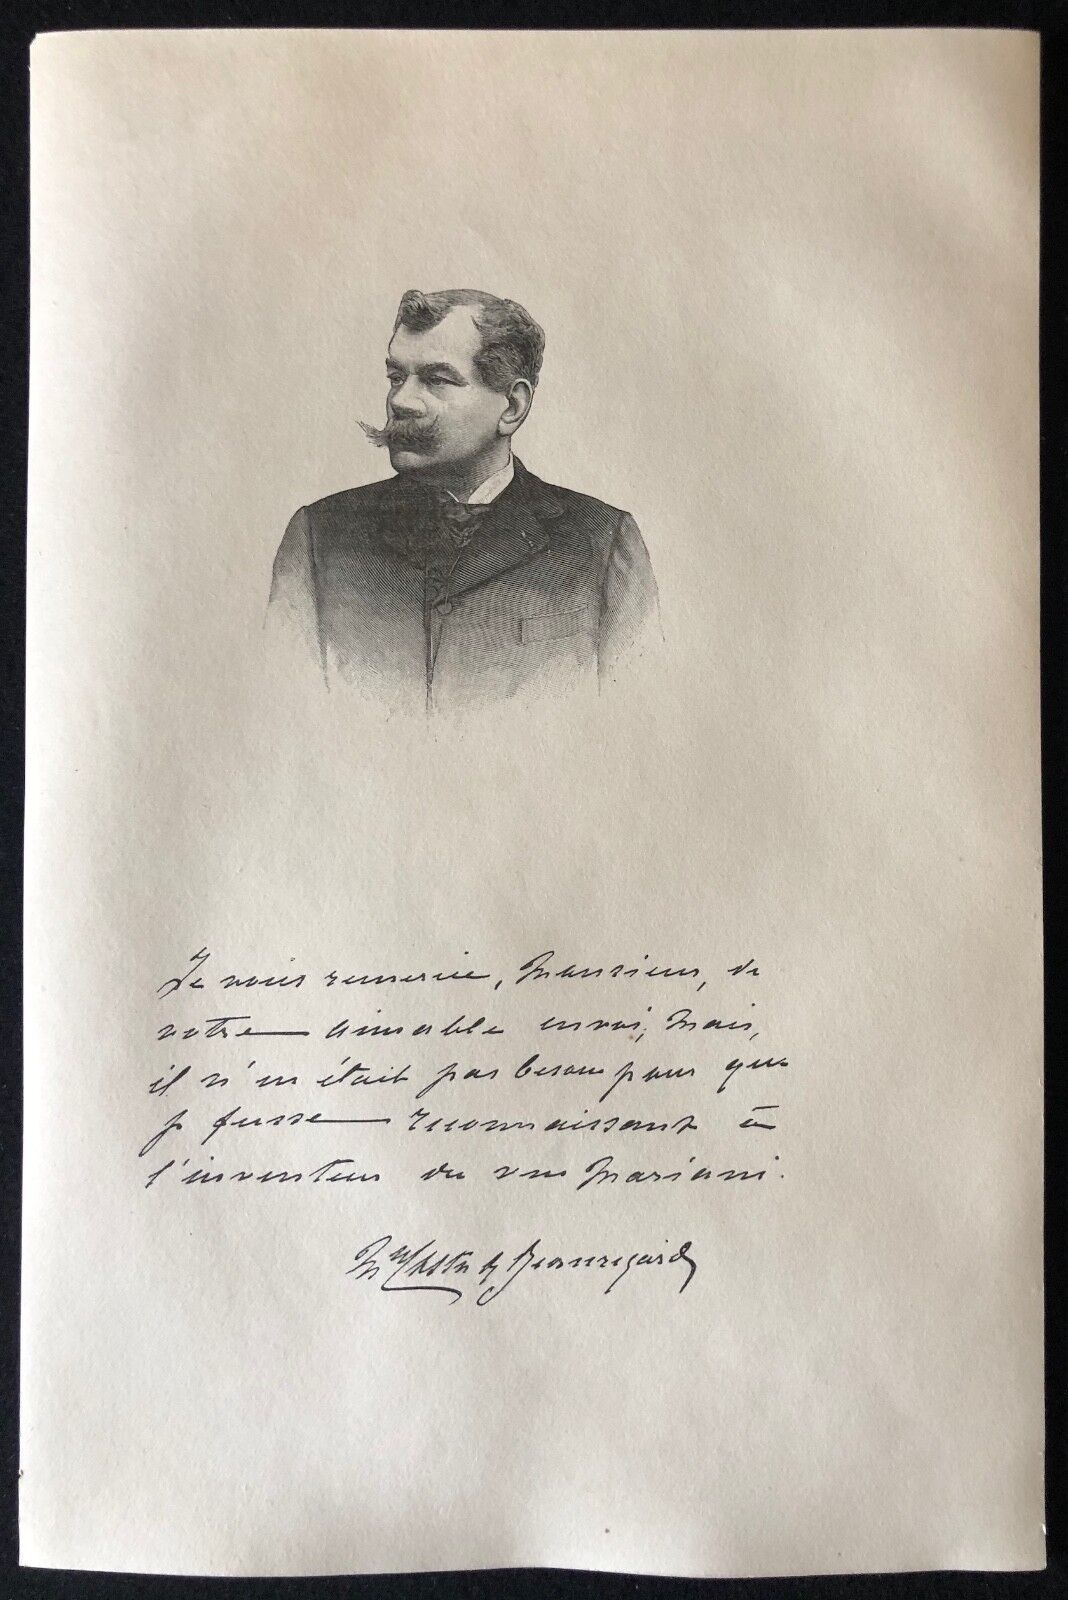 Je vous remercie, Monsieur, de
votre aimable envoi, mais,
il n'en était pas besoin pour que
je fusse reconnaissant à
l'inventeur du vin Mariani.
Mis Costa de Beauregard